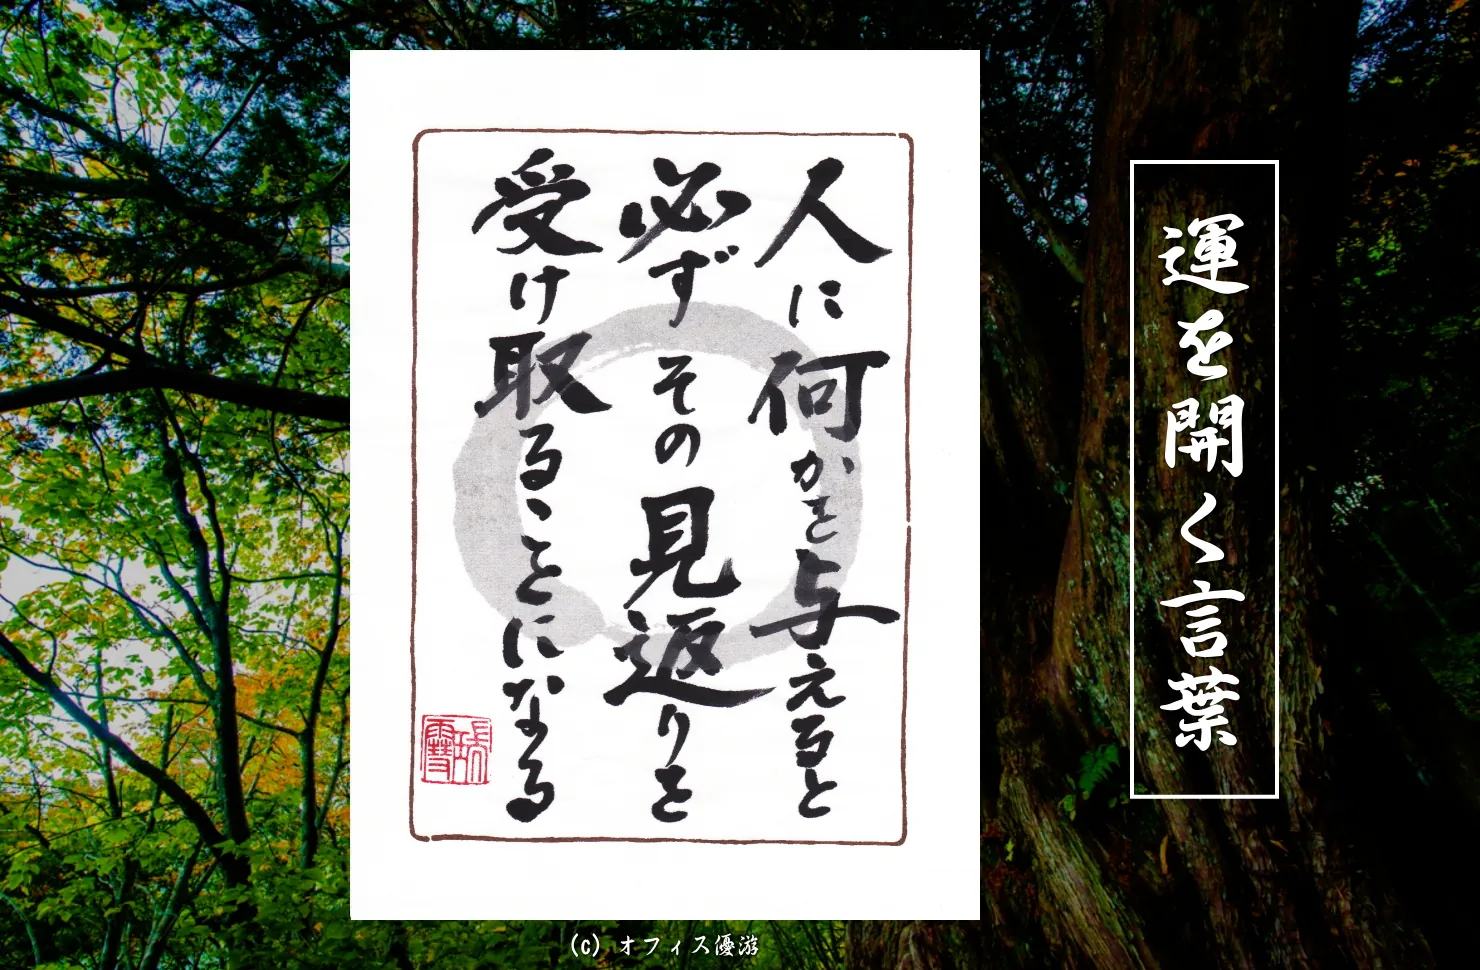 運を開く言葉
人に何かを与えると
必ずその見返りを
受け取ることになる
(c) オフィス優游